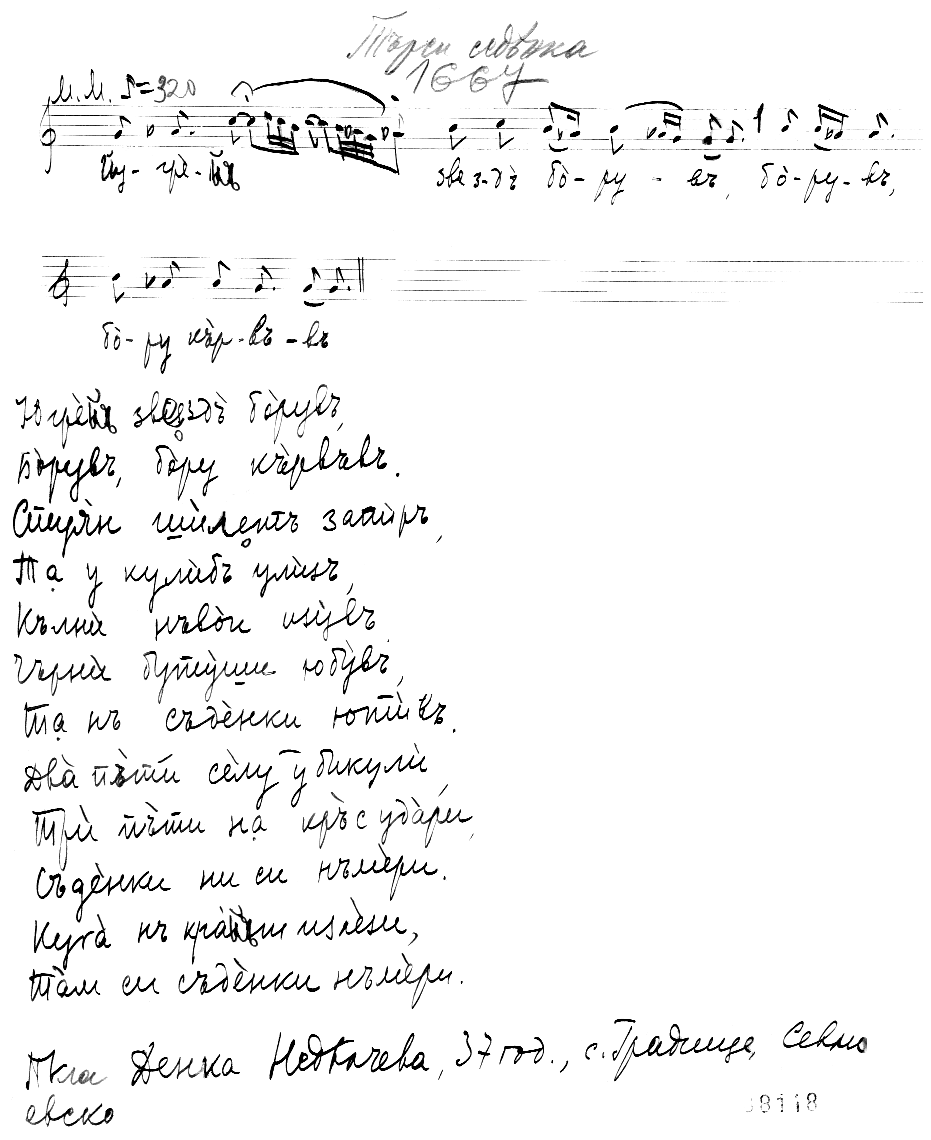 Търси седянка
1667
М. М. ♪=320
Из-грѐ-йъ звез-дъ̀ бо̀-ру-въ, бо̀-ру-въ,
бо̀-ру къ̀р-въ-въ
Югрѐйъ звездъ̀ бо̀рувъ,
Бо̀рувъ, бо̀ру къ̀рвъвъ.
Стуя̀н шѝлентъ запѝръ,
Та у кулѝбъ улѝзъ,
Кълнѝ нъво̀и узу̀въ
Чърнѝ буту̀ши юбу̀въ,
Та нъ съдѐнки ютѝвъ.
Два̀ пъ̀ти сѐлу убикулѝ,
Трѝ пъ̀ти на кръ̀с уда̀ри,
Съдѐнки ни си нъмѐри.
Куга̀ нъ кра̀йъ излѐзи,
Та̀м си съдѐнки нъмѐри.
Пкла Денка Недкачева, 37 год., с. Градище, Севли
евско
38118